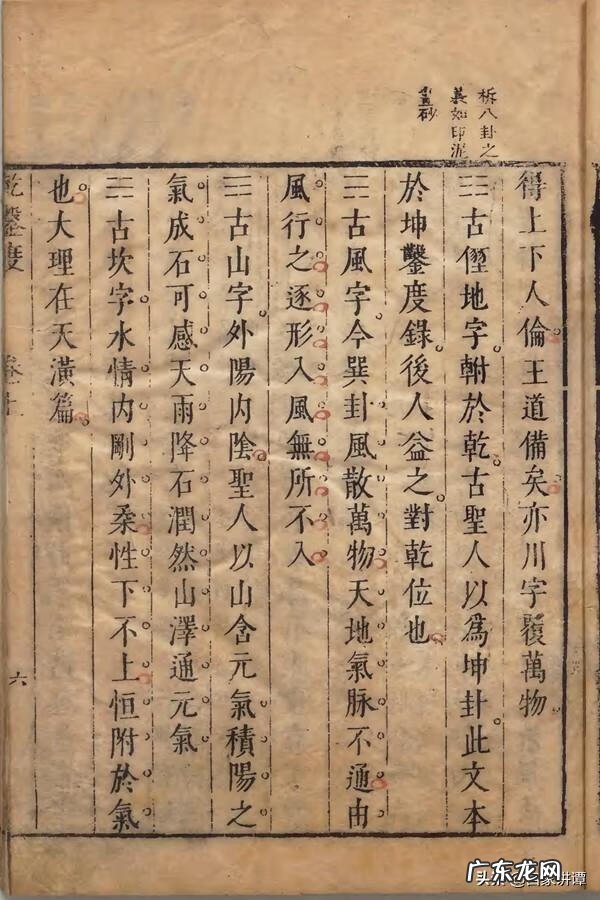 析八卦之
義如印泥
畫砂
得上下人倫王道備矣亦川字覆萬物
☷古堃地字輏於乾古聖人以爲坤卦此文本
於坤鑿度錄後人益之對乾位也
☴古風字今巽卦風散萬物天地氣脉不通由
風行之逐形入風無所不入
☶古山字外陽內陰聖人以山含元氣積陽之
氣成石可感天雨降石潤然山澤通元氣
☵古坎字水情內剛外柔性下不上恒附於氣
也大理在天潢篇
乾鑿度
卷上
六
广东龙网
头条@国家讲谭